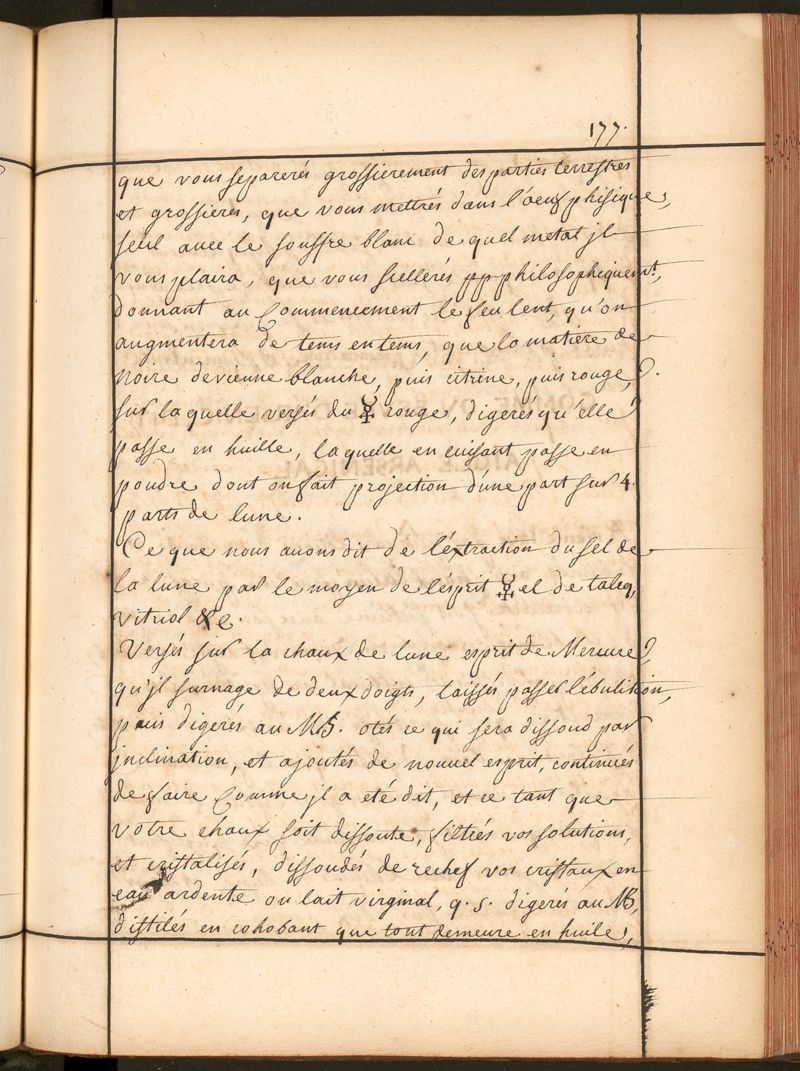 177.
que vous separerés grossierement des parties terrestres
et grossieres, que vous mettrés dans l'oeuf phisique,
seul auec le souffre blanc de quel metal jl
vous plaira, que vous scellerés philosophiquemt.,
donnant au Commencement le feu lent, qu'on
augmentera de tems en tems, que la matiere de
noire devienne blanche, puis citrine, puis rouge,
sur laquelle versés du ☿ rouge, digerés qu'elle
passe en huille, laquelle en cuisant passe en
poudre dont on fait projection d'une part sur 4.
parts de lune.
Ce que nous auons dit de l'éxtraction du sel de
la lune par le moyen de l'ésprit ☿el de talcq,
vitriol &c.
Versés sur la chaux de lune esprit de Mercure,
qu'jl surnage de deux doigts, laissés passer l'ébulition,
puis digerés au MB. otés ce qui sera dissoud par
jnclination, et ajoutés de nouuel esprit, continués
de faire Comme jl a eté dit, et ce tant que
votre chaux soit dissoute, filtrés vos solutions,
et cristalisés, dissoudés de rechef vos cristaux en
eau ardente ou lait virginal, q. s. digerés au MB,
distilés en cohobant que tout demeure en huile,